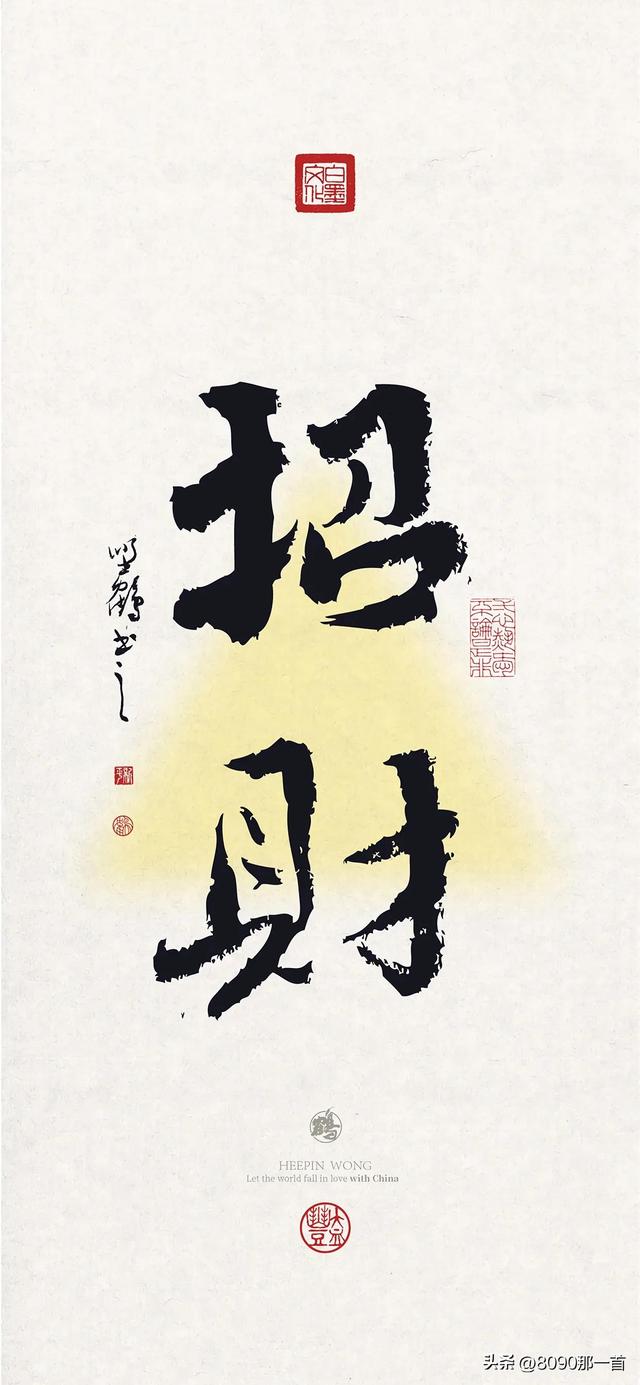 白墨文化
招
財
鶴书之
鶴
HEEPIN WONG
Let the world fall in love with China
头条 @8090那一首